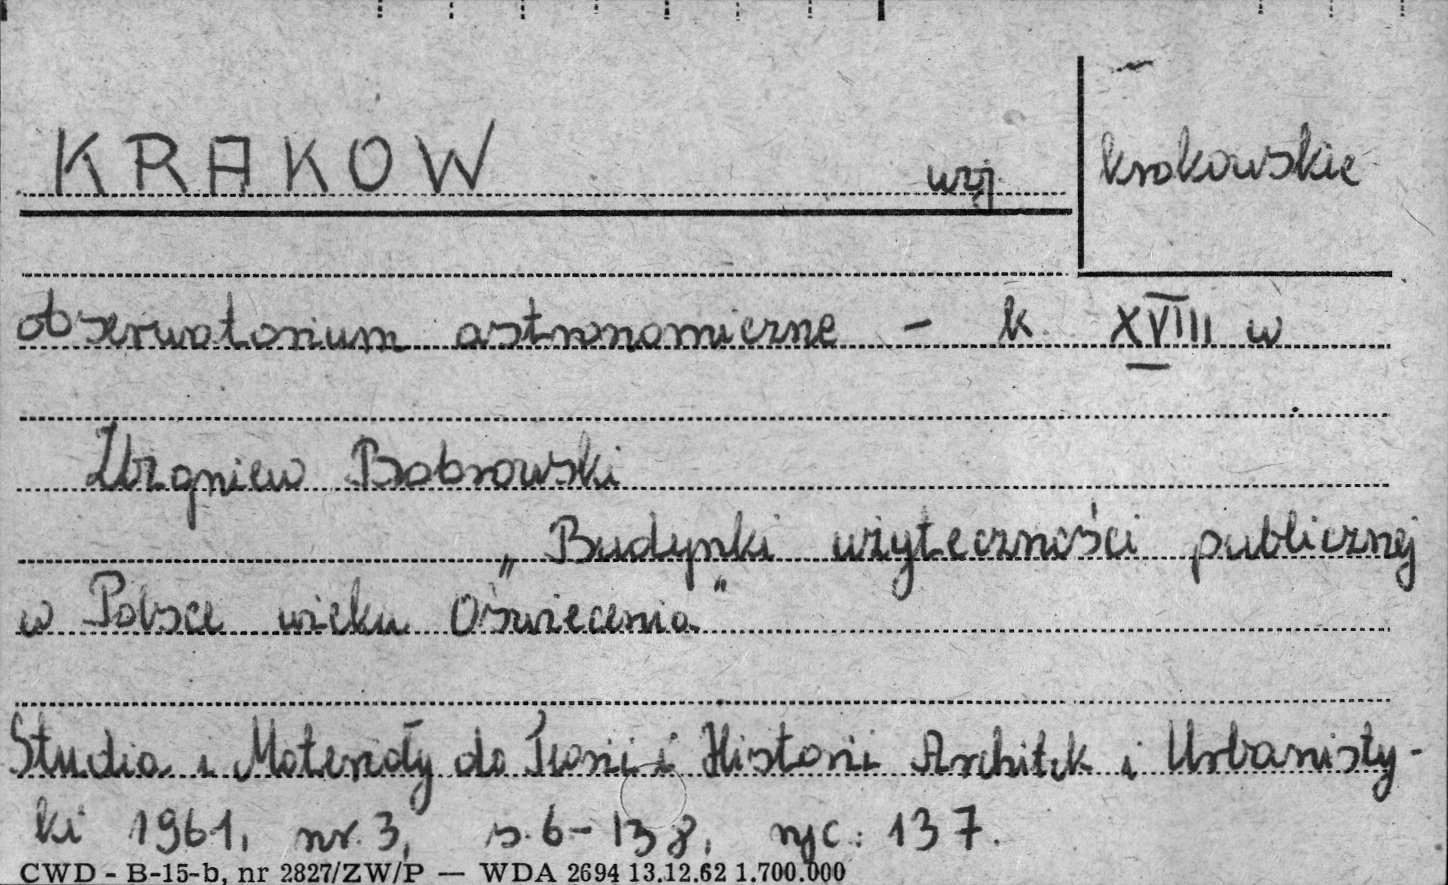 KRAKOW woj krakowskie
obserwatorium astronomiczne - k XVIII w
Zbigniew Bobrowski
„Budynki użyteczności publicznej
w Polsce wieku Oświecenia"
Studia i Materiały do Teorii i Historii Architek i Urbanisty-
ki 1961, nr. 3, s. 6-138, ryc: 137.
CWD - B-15-b, nr 2827/ZW/P — WDA 2694 13.12.62 1.700.000